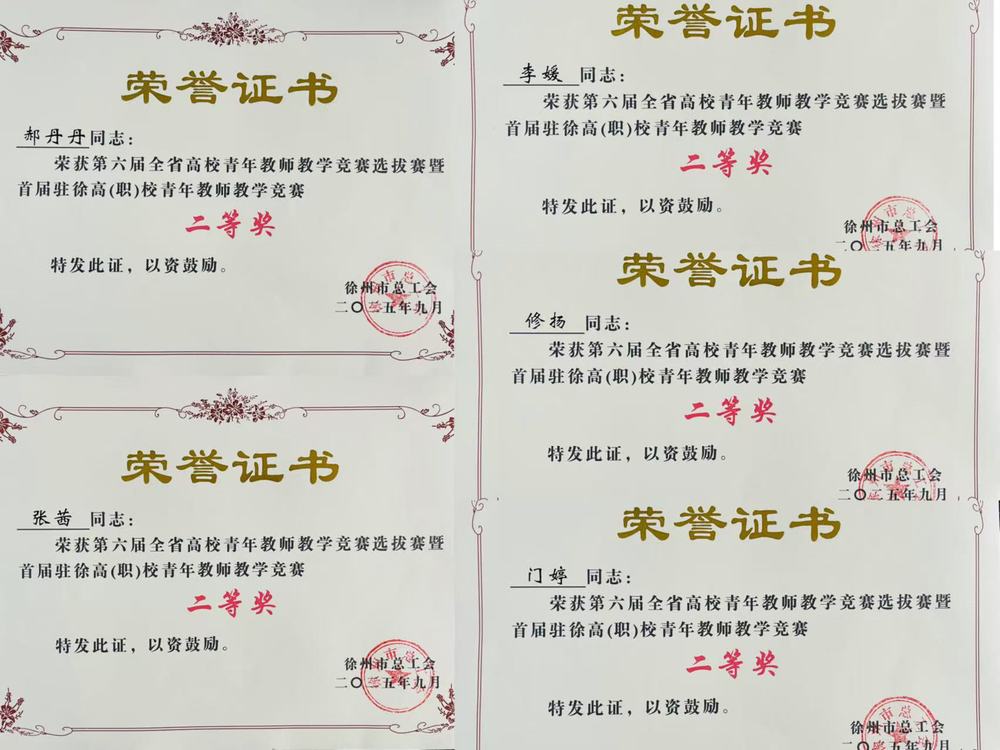 荣誉证书
郝丹丹同志：
荣获第六届全省高校青年教师教学竞赛选拔赛暨
首届驻徐高(职)校青年教师教学竞赛
二等奖
特发此证，以资鼓励。
徐州市总工会
二〇二五年九月
荣誉证书
张茜同志：
荣获第六届全省高校青年教师教学竞赛选拔赛暨
首届驻徐高(职)校青年教师教学竞赛
二等奖
特发此证，以资鼓励。
徐州市总工会
二〇二五年九月
荣誉证书
李媛同志：
荣获第六届全省高校青年教师教学竞赛选拔赛暨
首届驻徐高(职)校青年教师教学竞赛
二等奖
特发此证，以资鼓励。
徐州市总工会
二〇二五年九月
荣誉证书
修扬同志：
荣获第六届全省高校青年教师教学竞赛选拔赛暨
首届驻徐高(职)校青年教师教学竞赛
二等奖
特发此证，以资鼓励。
徐州市总工会
二〇二五年九月
荣誉证书
门婷同志：
荣获第六届全省高校青年教师教学竞赛选拔赛暨
首届驻徐高(职)校青年教师教学竞赛
二等奖
特发此证，以资鼓励。
徐州市总工会
二〇二五年九月